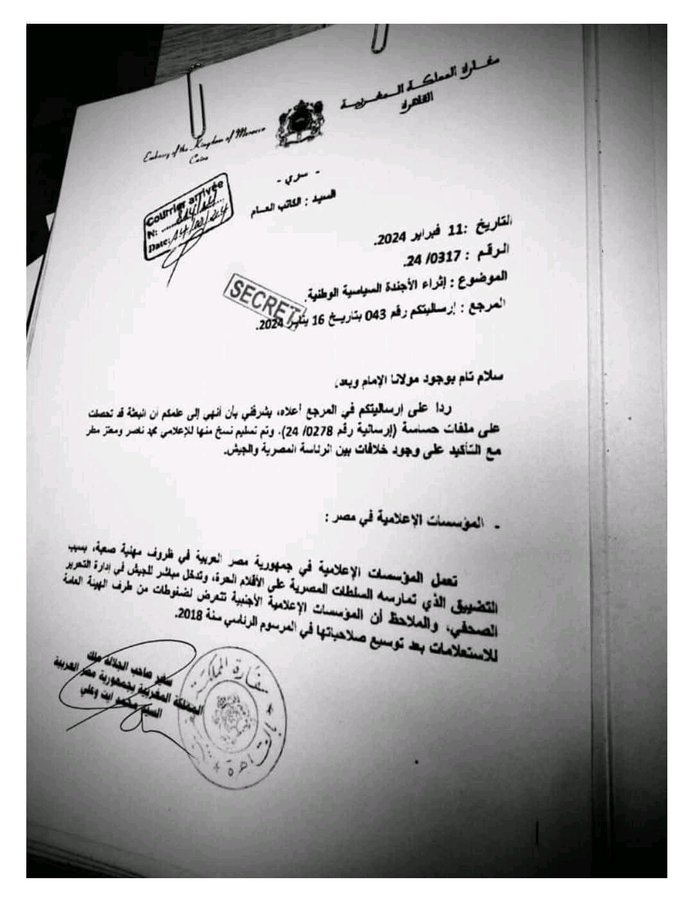 سفارة المملكة المغربية
القاهرة
Embassy of the Kingdom of Morocco
Cairo
- سري -
السيد : الكاتب العام
Courrier arrivée
N:
Date:
التاريخ : 11 فبراير 2024.
الرقم : 0317/ 24.
الموضوع : إثراء الأجندة السياسية الوطنية.
SECRET
المرجع : إرساليتكم رقم 043 بتاريخ 16 يناير 2024.
سلام تام بوجود مولانا الإمام وبعد،
ردا على إرساليتكم في المرجع أعلاه، يشرفني بأن أنهي إلى علمكم أن البعثة قد تحصلت
على ملفات حساسة (إرسالية رقم 0278/ 24). وتم تسليم نسخ منها للإعلامي محمد ناصر ومعتز مطر
مع التأكيد على وجود خلافات بين الرئاسة المصرية والجيش.
- المؤسسات الإعلامية في مصر :
تعمل المؤسسات الإعلامية في جمهورية مصر العربية في ظروف مهنية صعبة، بسبب
التضييق الذي تمارسه السلطات المصرية على الأقلام الحرة، وتدخل مباشر للجيش في إدارة التحرير
الصحفي، والملاحظ أن المؤسسات الإعلامية الأجنبية تتعرض لضغوطات من طرف الهيئة العامة
للاستعلامات بعد توسيع صلاحياتها في المرسوم الرئاسي سنة 2018.
سفير صاحب الجلالة ملك
المملكة المغربية بجمهورية مصر العربية
السيد محمد ايت وعلي
سفارة المملكة
بالقاهرة